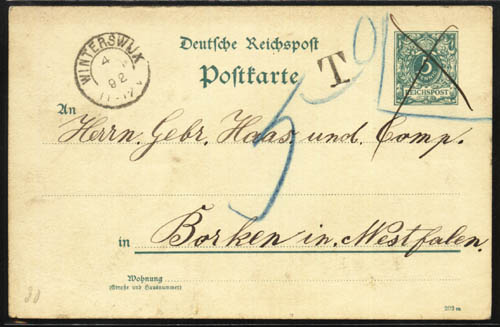 WINTERSWIJK
4
92
Deutsche Reichspost
Postkarte
T
5
REICHSPOST
An
Herrn. Gebr. Haas. und. Comp.
5
in Borken in. Westfalen.
Wohnung
(Straße und Hausnummer)